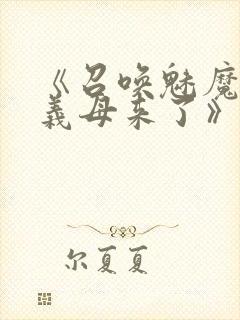 《召唤魅魔
義母来了》
尔夏夏